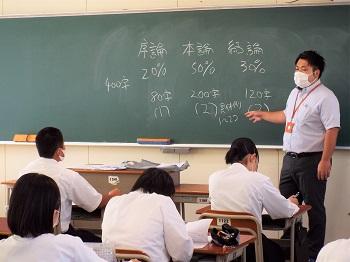 序論 本論 結論
20% 50% 30%
400字
80字 200字 120字
(1) (2) 具体例 (2)